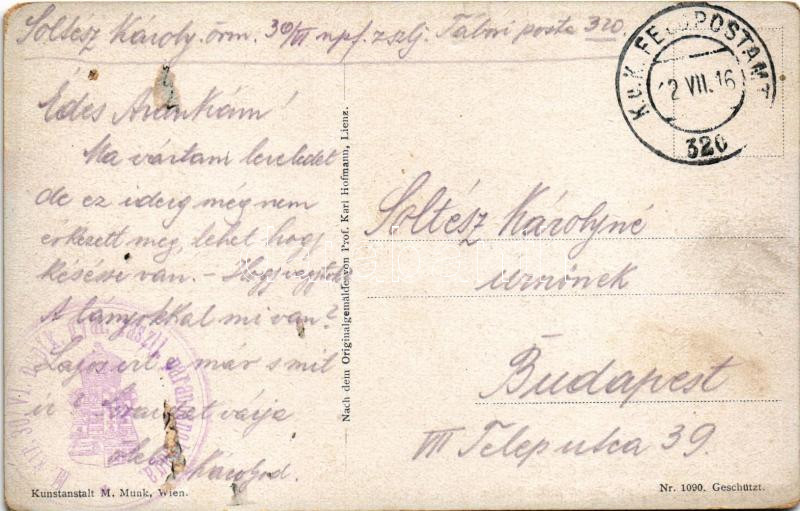 Soltész Károly őrm. 30/III npf. zszlj. Tábori posta 320.
K.u.K. FELDPOSTAMT
12 VII. 16
320
Édes Arankám!
Ma vártam leveledet
de ez ideig még nem
érkezett meg, lehet hogy
késésse van. – Hogy vagytok
A lányokkal mi van?
Lajos írt e már s mit
ír
várja
Károlyod.
Nach dem Originalgemälde von Prof. Karl Hofmann, Lienz.
Soltész Károlyné
urnőnek
Budapest
VII Telep utca 39.
Kunstanstalt M. Munk, Wien.
Nr. 1090. Geschützt.